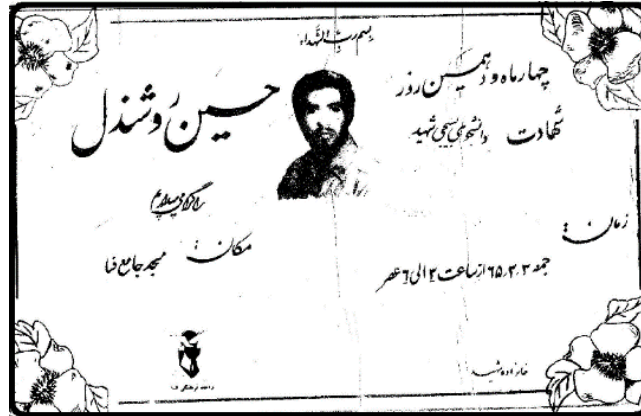 بسم رب الشهداء
چهار ماه و دهمین روز
شهادت دانشجوی بسیجی شهید
حسین روشندل
را گرامی میداریم
زمان:
جمعه ۲٫۳٫۶۵ از ساعت ۲ الی ۶ عصر
مکان: مسجد جامع فسا
خانواده شهید